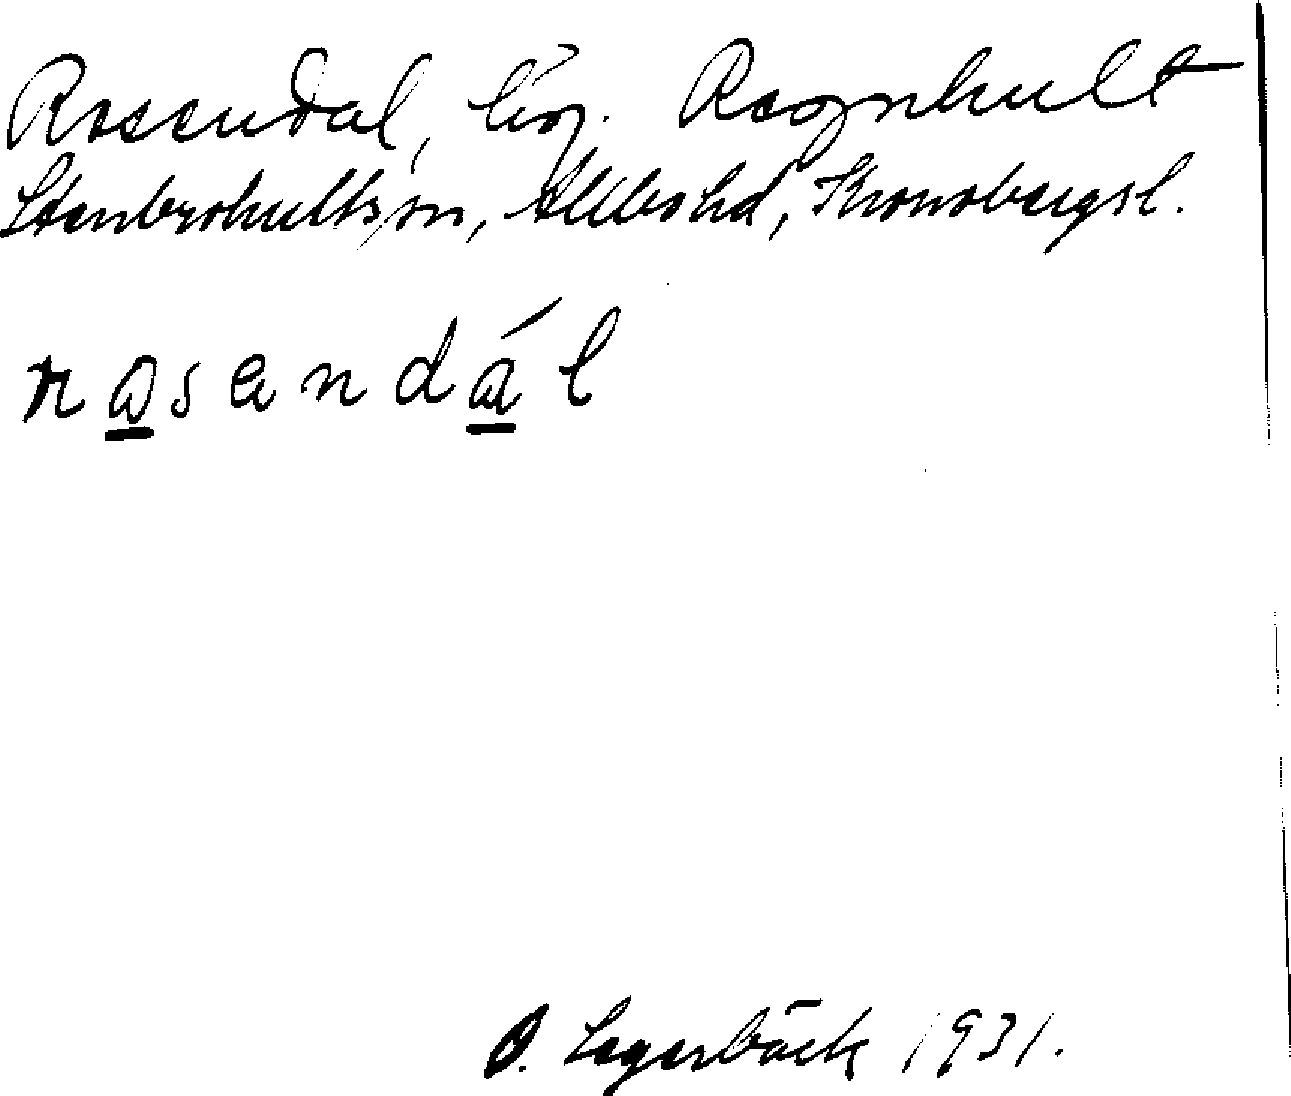 Rosendal, läg. Ragnhult
Stenbrohults sn, Allbo hd, Kronobergs l.
rosendál
O. Lagerbäck 1931.